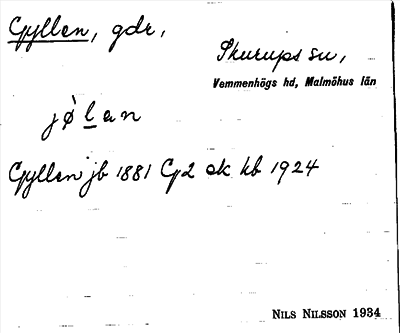 Gyllen, gdr,
Skurups sn,
Vemmenhögs hd, Malmöhus län
jø̀lan
Gyllen jb 1881 Gj2 ek kb 1924
NILS NILSSON 1934